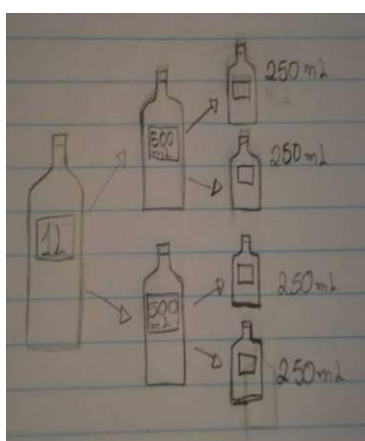 1L
500
mL
250 mL
250 mL
500
mL
250 mL
250 mL